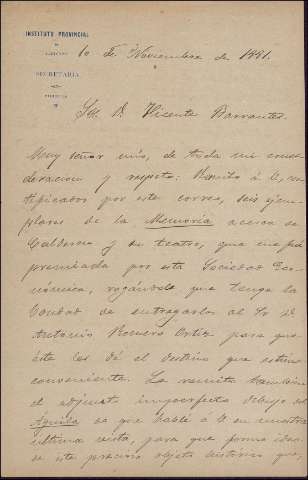 INSTITUTO PROVINCIAL
DE
SECRETARIA
10 de Noviembre de 1881.
Sr. D. Vicente Barrantes
Muy señor mio, de toda mi consi
deracion y respeto: Remito à V., cer
tificados por este correo, seis ejem
plares de la Memoria acerca de
Calderon y su teatro, que me fué
premiada por esta Sociedad Eco
nómica, rogándole que tenga la
bondad de entregarlos al Sr. D.
Antonio Romero Ortiz para que
éste les dé el destino que estime
conveniente. Le remito tambien
el adjunto imperfecto dibujo del
Aguila de que hablé à V. en nuestra
última vista, para que forme idea
de este precioso objeto histórico que,